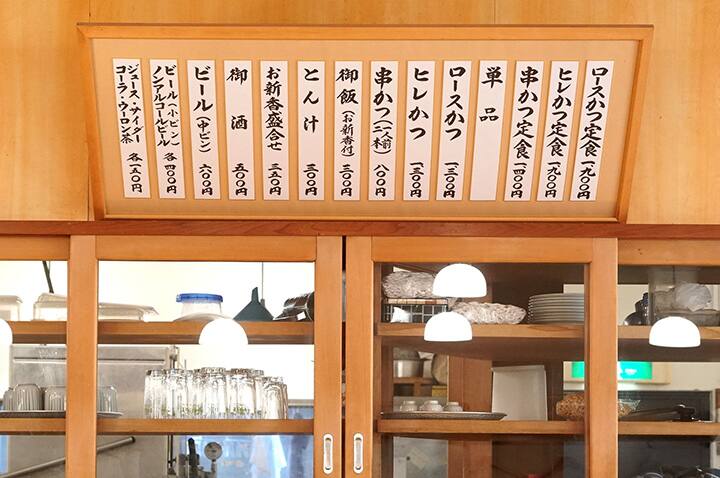 ロースかつ定食 一、九〇〇円
ヒレかつ定食 一、九〇〇円
串かつ定食 一、四〇〇円
単品
ロースかつ 一、三〇〇円
ヒレかつ 一、三〇〇円
串かつ(一人前二本) 八〇〇円
御飯(お新香付) 三〇〇円
とん汁 三〇〇円
お新香盛合せ 三五〇円
御酒 五〇〇円
ビール(中ビン) 六〇〇円
ビール(小ビン)
ノンアルコールビール 各四〇〇円
ジュース・サイダー
コーラ・ウーロン茶 各一五〇円